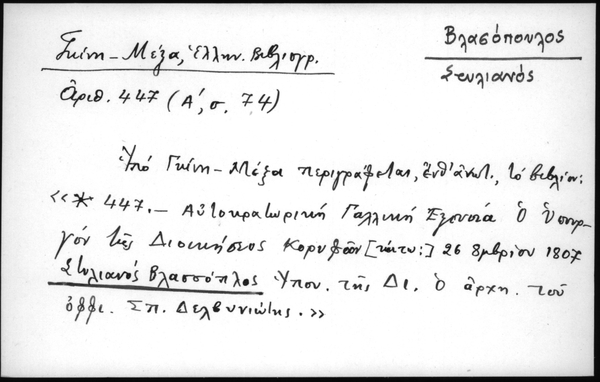 Γκίνη-Μέξα, Ἑλλην. Βιβλιογρ.
Βλασόπουλος
Στυλιανός
Ἀριθ. 447 (Α', σ. 74)
Ὑπό Γκίνη-Μέξα περιγράφεται, ἔνθ' ἀνωτ., τό βιβλίον:
«* 447.- Αὐτοκρατωρική Γαλλική Ἐξουσία Ὁ Ὑπουρ-
γόν τῆς Διοικήσεος Κορυφῶν [κάτω:] 26 8μβρίου 1807
Στυλιανός Βλασσόπλος Ὑπου. τῆς Δι. Ὁ ἀρχη. τοῦ
ὀφφι. Σπ. Δελβυνιώτης.»